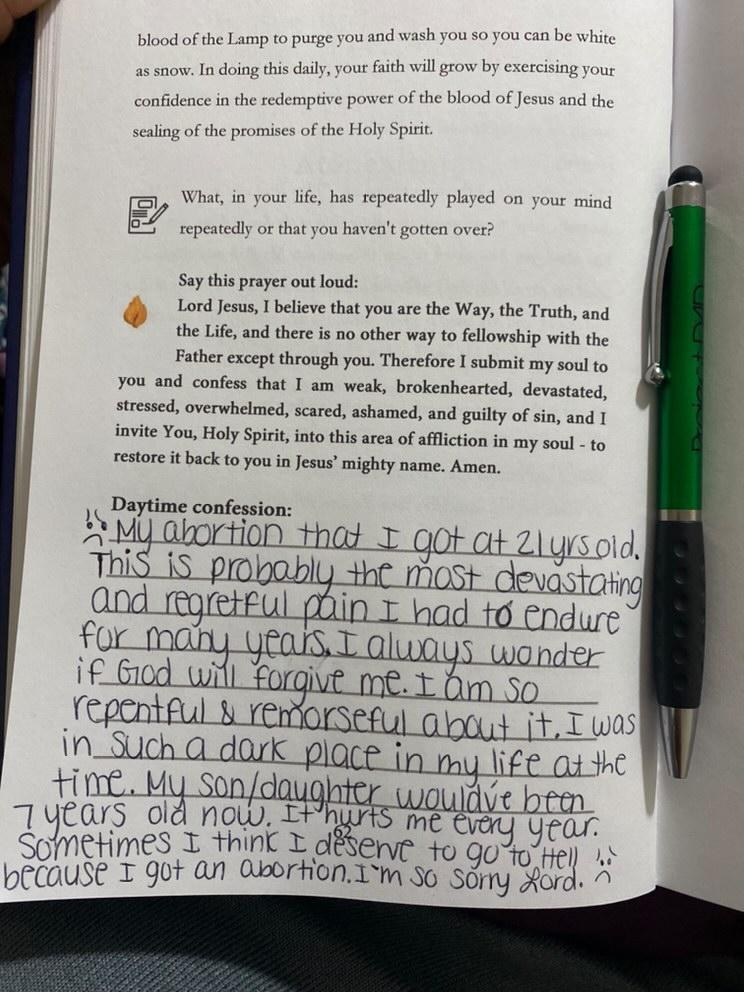 blood of the Lamp to purge you and wash you so you can be white
as snow. In doing this daily, your faith will grow by exercising your
confidence in the redemptive power of the blood of Jesus and the
sealing of the promises of the Holy Spirit.
What, in your life, has repeatedly played on your mind
repeatedly or that you haven't gotten over?
Say this prayer out loud:
Lord Jesus, I believe that you are the Way, the Truth, and
the Life, and there is no other way to fellowship with the
Father except through you. Therefore I submit my soul to
you and confess that I am weak, brokenhearted, devastated,
stressed, overwhelmed, scared, ashamed, and guilty of sin, and I
invite You, Holy Spirit, into this area of affliction in my soul - to
restore it back to you in Jesus' mighty name. Amen.
Daytime confession:
My abortion that I got at 21yrs old.
This is probably the most devastating
and regretful pain I had to endure
for many years. I always wonder
if God will forgive me. I am so
repentful & remorseful about it. I was
in such a dark place in my life at the
time. My son/daughter would've been
7 years old now. It hurts me every year.
Sometimes I think I deserve to go to Hell
because I got an abortion. I'm so sorry Lord.
Project DAD